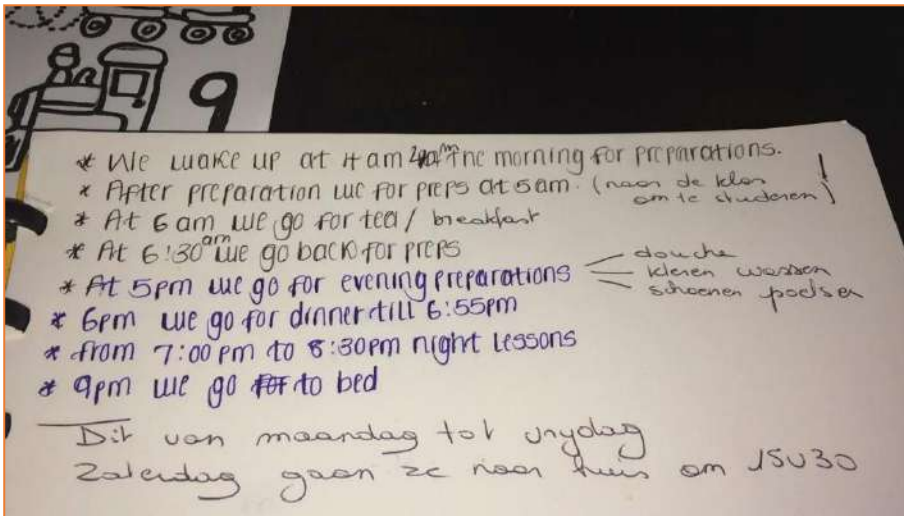 9
* We wake up at 4 am in the morning for preparations.
* After preparation we for preps at 5am. (naar de klas om te studeren)
* At 6 am we go for tea/ breakfast
* At 6:30 am we go back for preps
* At 5pm we go for evening preparations
douche
kleren wassen
schoenen poetsen
* 6pm we go for dinner till 6:55pm
* from 7:00 pm to 8:30pm night lessons
* 9pm we go to bed
Dit van maandag tot vrydag
Zaterdag gaan ze naar huis om 15u30